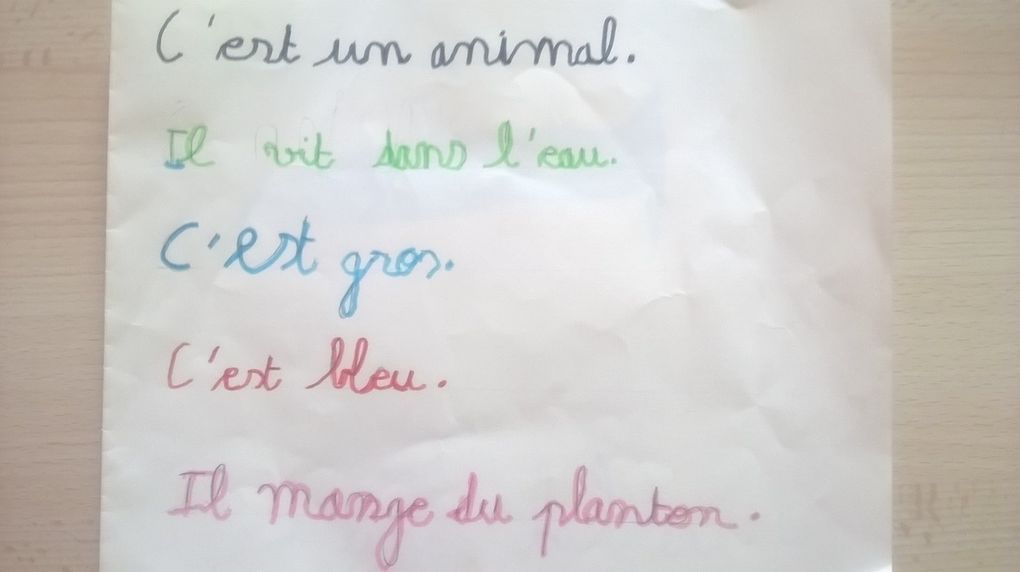 C'est un animal.
Il vit dans l'eau.
C'est gros.
C'est bleu.
Il mange du planton.